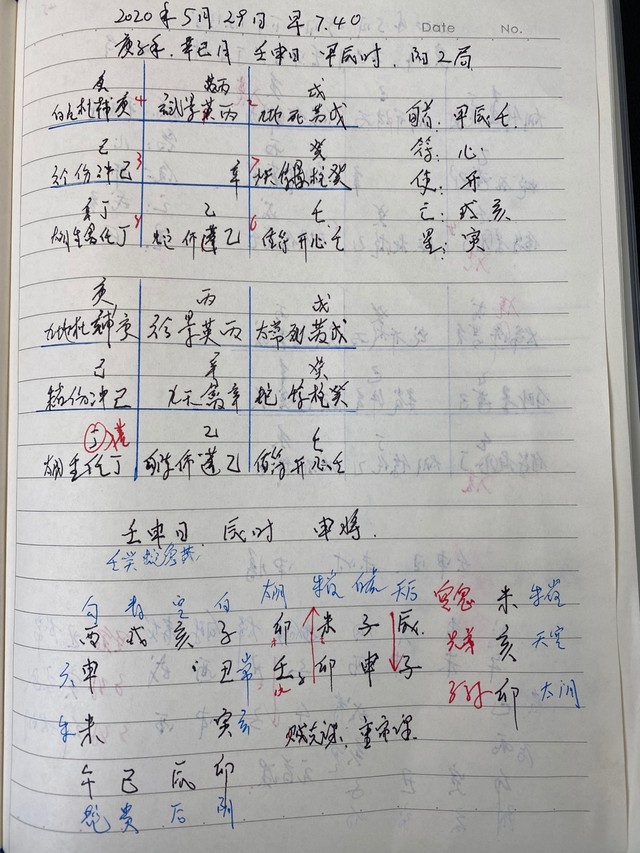 2020年5月29日 早7.40
Date No.
庚子年 辛巳月 壬申日 甲辰时 阳2局
庚 丙 戊
白九杜辅庚 4 玄武景英丙 2 九地死芮戊 旬首:甲辰壬
己 癸 符:心
六合伤冲己 3 辛 7 惊柱癸 使:开
丁 乙 壬 亡:戌亥
太阴生任丁 蛇休蓬乙 6 值符开心壬 星:寅
庚 丙 戊
九地杜辅庚 六合景英丙 太常死芮戊
己 辛 癸
伤冲己 九天禽辛 蛇惊柱癸
丁 乙 壬
太阴生任丁 休蓬乙 值符开心壬
壬申日 辰时 申将
勾 青 空 白 太阴 朱雀 白虎 天后 未 朱雀
酉 戌 亥 子 卯 未 子 辰 兄弟 亥 天空
六申 丑常 壬 卯 申 子 子孙 卯 太阴
朱未 寅玄 贼克课 重审课
午 巳 辰 卯
蛇 贵 后 阴